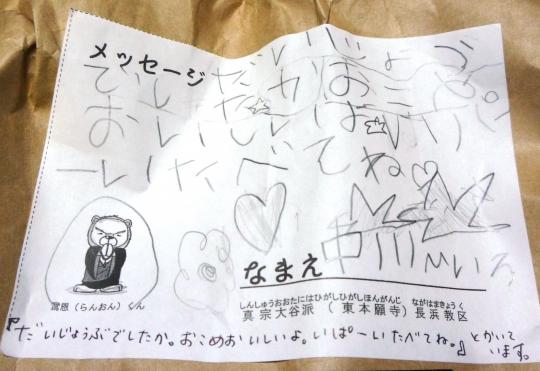 メッセージ
だいじょうぶ
でしたか おこめ
おいしいよ いっぱ
ーいたべてね
なまえ
中川
鸞恩（らんおん）くん
しんしゅうおおたにはひがしひがしほんがんじ ながはまきょうく
真宗大谷派（東本願寺）長浜教区
『だいじょうぶでしたか。おこめおいしいよ。いぱーいたべてね。』とかいて
います。